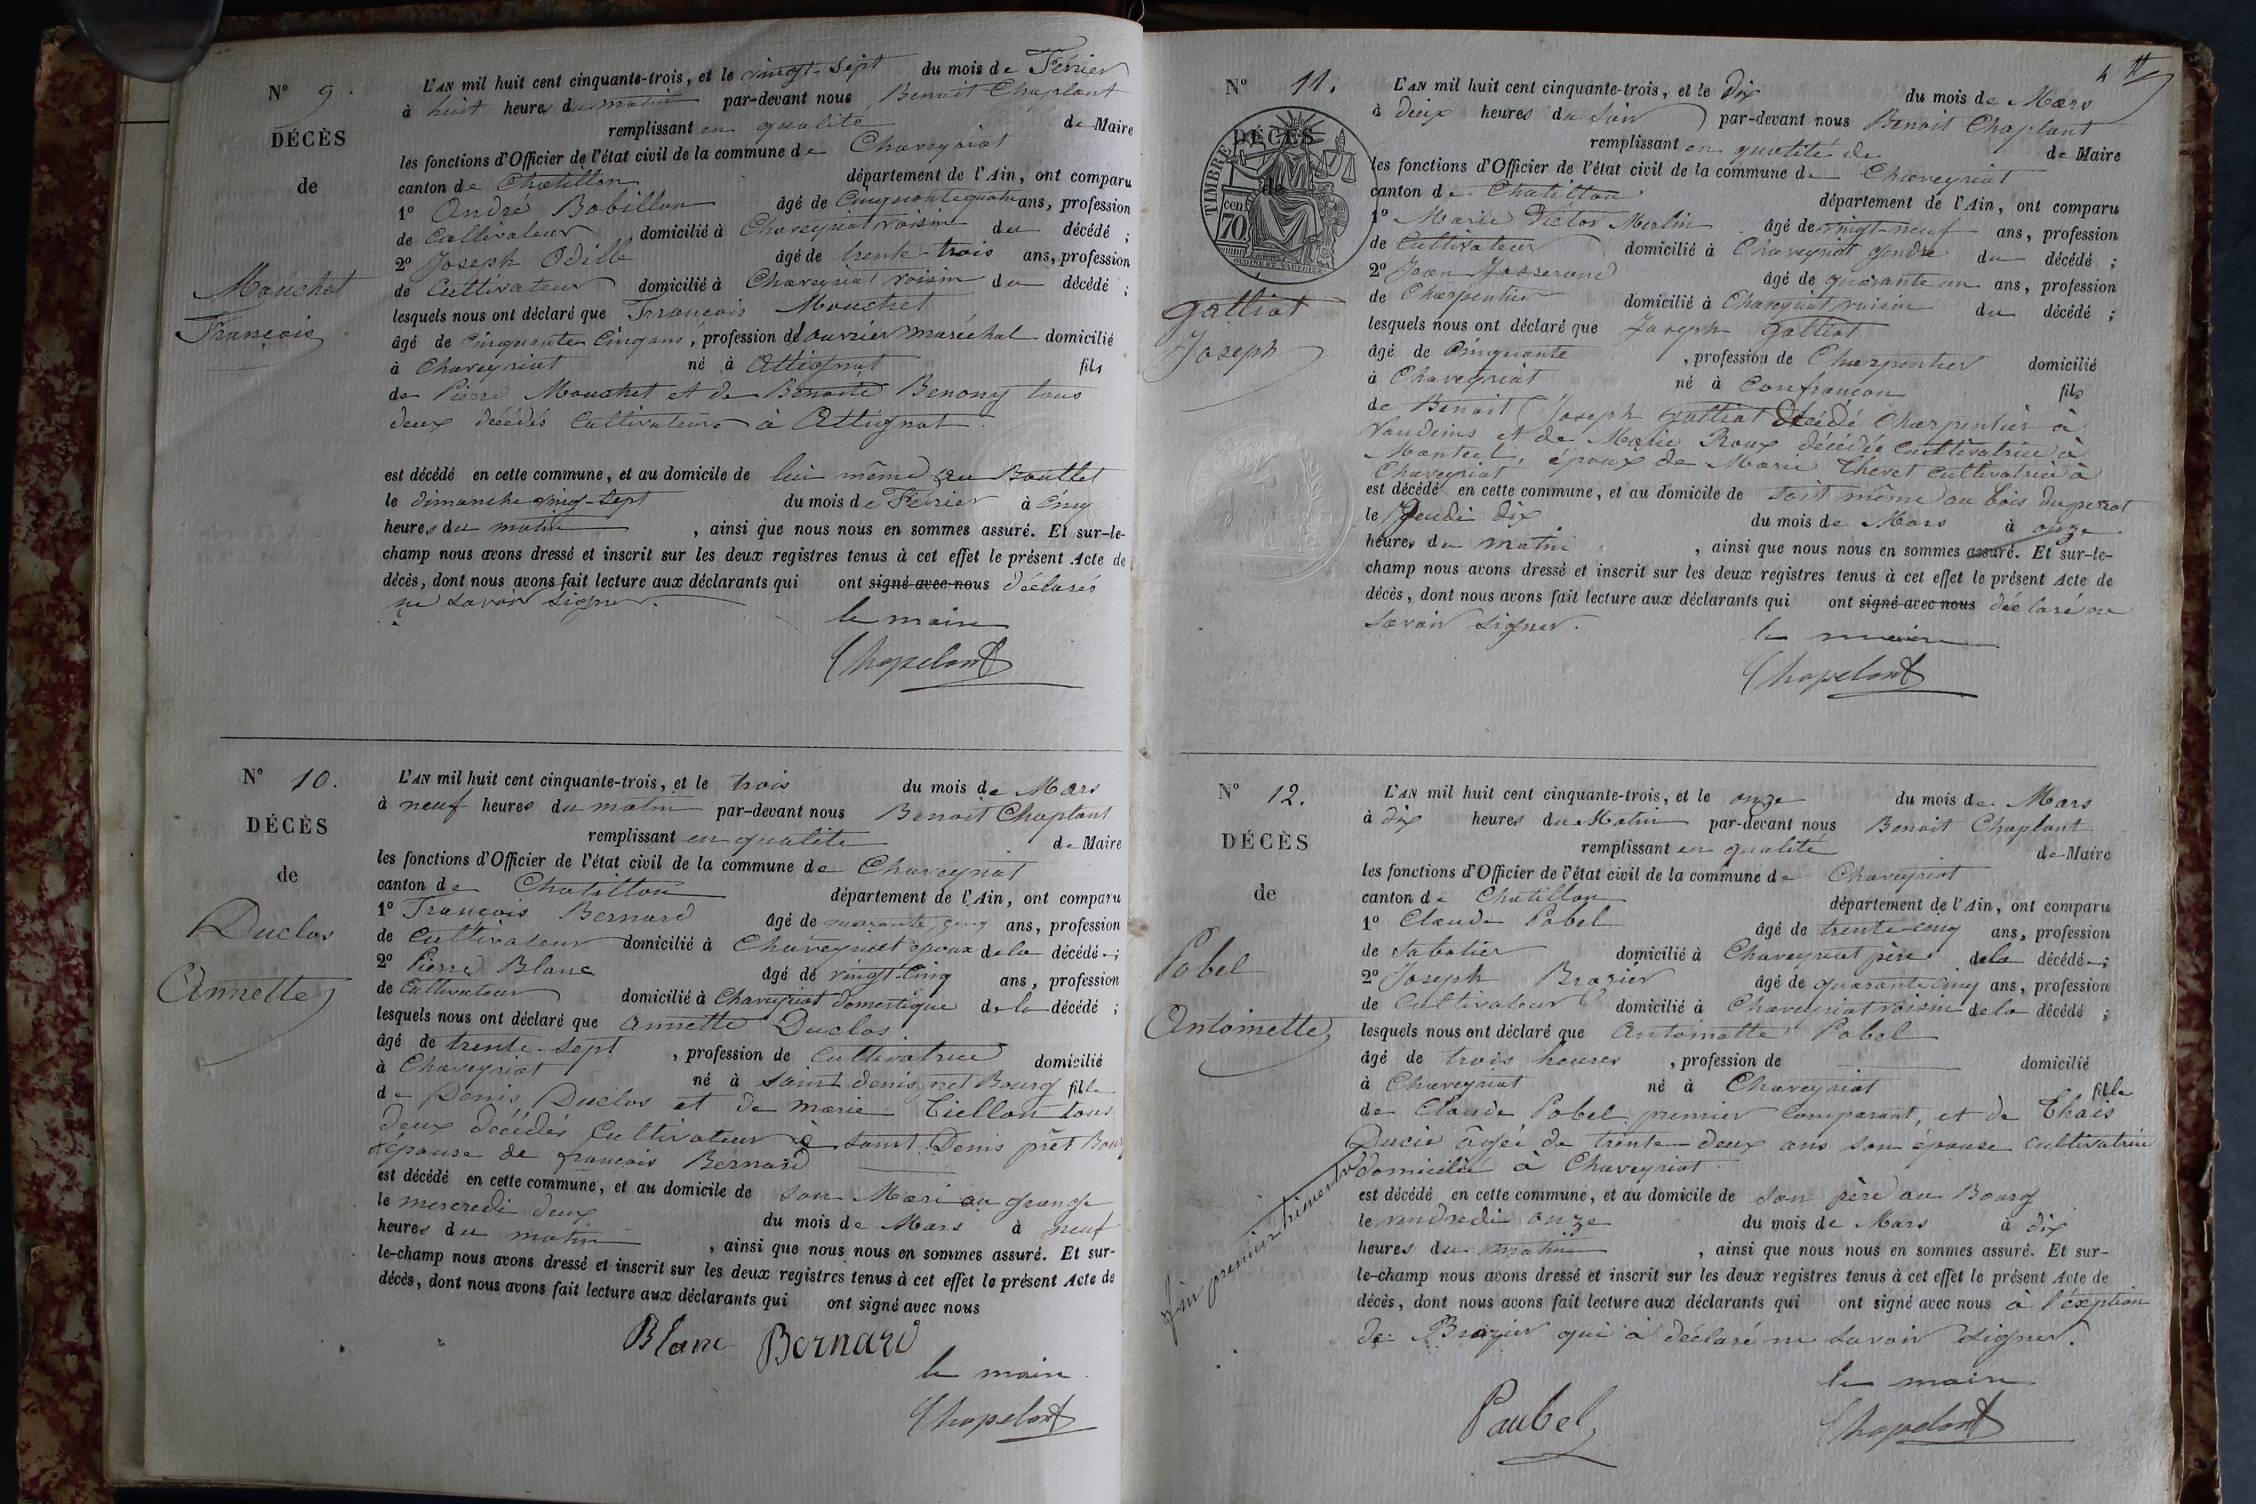 N° 9.
DÉCÈS
de
Mouchet
François
L'AN mil huit cent cinquante-trois, et le vingt-sept du mois de Février
à huit heures du matin par-devant nous Benoit Chaplant
remplissant en qualité de Maire
les fonctions d'Officier de l'état civil de la commune de Chaveyriat
canton de Chatillon département de l'Ain, ont comparu
1° André Bobillon âgé de Cinquantequatre ans, profession
de Cultivateur domicilié à Chaveyriat voisin du décédé ;
2° Joseph Odille âgé de trente-trois ans, profession
de Cultivateur domicilié à Chaveyriat voisin du décédé ;
lesquels nous ont déclaré que François Mouchet
âgé de Cinquante Cinq ans, profession d'ouvrier maréchal domicilié
à Chaveyriat né à Attignat fils
de Pierre Mouchet et de Benoite Benony tous
deux décédés Cultivateurs à Attignat.
est décédé en cette commune, et au domicile de lui même au Bouttet
le dimanche vingt-sept du mois de Février à cinq
heures du matin , ainsi que nous nous en sommes assuré. Et sur-le-
champ nous avons dressé et inscrit sur les deux registres tenus à cet effet le présent Acte de
décès, dont nous avons fait lecture aux déclarants qui ont signé avec nous déclarés
ne savoir signer.
le maire
Chapelant
N° 10.
DÉCÈS
de
Duclos
Annette
L'AN mil huit cent cinquante-trois, et le trois du mois de Mars
à neuf heures du matin par-devant nous Benoit Chaplant
remplissant en qualité de Maire
les fonctions d'Officier de l'état civil de la commune de Chaveyriat
canton de Chatillon département de l'Ain, ont comparu
1° François Bernard âgé de quarante cinq ans, profession
de Cultivateur domicilié à Chaveyriat époux de la décédé ;
2° Pierre Blanc âgé de vingt-cinq ans, profession
de Cultivateur domicilié à Chaveyriat domestique de la décédé ;
lesquels nous ont déclaré que Annette Duclos
âgé de trente-sept , profession de Cultivatrice domicilié
à Chaveyriat né à Saint denis pret Bourg fille
de Denis Duclos et de marie Tiellon tous
deux décédés Cultivateur à Saint-Denis prêt Bourg
épouse de françois Bernard
est décédé en cette commune, et au domicile de son Mari au grange
le mercredi deux du mois de Mars à neuf
heures du matin , ainsi que nous nous en sommes assuré. Et sur-
le-champ nous avons dressé et inscrit sur les deux registres tenus à cet effet le présent Acte de
décès, dont nous avons fait lecture aux déclarants qui ont signé avec nous
Blanc Bernard
le maire
Chapelant
N° 11.
DÉCÈS
de
TIMBRE
cen
70
galliot
Joseph
L'AN mil huit cent cinquante-trois, et le dix du mois de Mars
à deux heures du soir par-devant nous Benoit Chaplant
remplissant en qualité de de Maire
les fonctions d'Officier de l'état civil de la commune de Chaveyriat
canton de Chatillon département de l'Ain, ont comparu
1° Marie Victor Merlin âgé de vingt-neuf ans, profession
de Cultivateur domicilié à Chaveyriat gendre du décédé ;
2° Jean Josserand âgé de quarante un ans, profession
de Charpentier domicilié à Chaveyriat voisin du décédé ;
lesquels nous ont déclaré que Joseph galliot
âgé de Cinquante , profession de Charpentier domicilié
à Chaveyriat né à Confrançon fils
de Benoit Joseph galliot Décédé Charpentier à
Vandeins et de Marie Roux décédée Cultivatrice à
époux de Marie Thevet Cultivatrice à
Chaveyriat
est décédé en cette commune, et au domicile de soit même au bois du
le Jeudi dix du mois de Mars à onze
heures du matin , ainsi que nous nous en sommes assuré. Et sur-le-
champ nous avons dressé et inscrit sur les deux registres tenus à cet effet le présent Acte de
décès, dont nous avons fait lecture aux déclarants qui ont signé avec nous déclaré ne
savoir signer.
le maire
Chapelant
N° 12.
DÉCÈS
de
Pobel
Antoinette
fin premier trimestre
L'AN mil huit cent cinquante-trois, et le onze du mois de Mars
à dix heures du Matin par-devant nous Benoit Chaplant
remplissant en qualité de Maire
les fonctions d'Officier de l'état civil de la commune de Chaveyriat
canton de Chatillon département de l'Ain, ont comparu
1° Claude Pobel âgé de trente-cinq ans, profession
de Sabotier domicilié à Chaveyriat père de la décédé ;
2° Joseph Brazier âgé de quarante cinq ans, profession
de Cultivateur domicilié à Chaveyriat voisin de la décédé ;
lesquels nous ont déclaré que Antoinette Pobel
âgé de trois heures , profession de domicilié
à Chaveyriat né à Chaveyriat fille
de Claude Pobel premier Comparant, et de Thaïs
Ducié âgée de trente-deux ans son épouse Cultivatrice
domiciliée à Chaveyriat
est décédé en cette commune, et au domicile de son père au Bourg
le vendredi onze du mois de Mars à dix
heures du matin , ainsi que nous nous en sommes assuré. Et sur-
le-champ nous avons dressé et inscrit sur les deux registres tenus à cet effet le présent Acte de
décès, dont nous avons fait lecture aux déclarants qui ont signé avec nous à l'exption
de Brazier qui à déclaré ne savoir signer.
le maire
Paubel
Chapelant